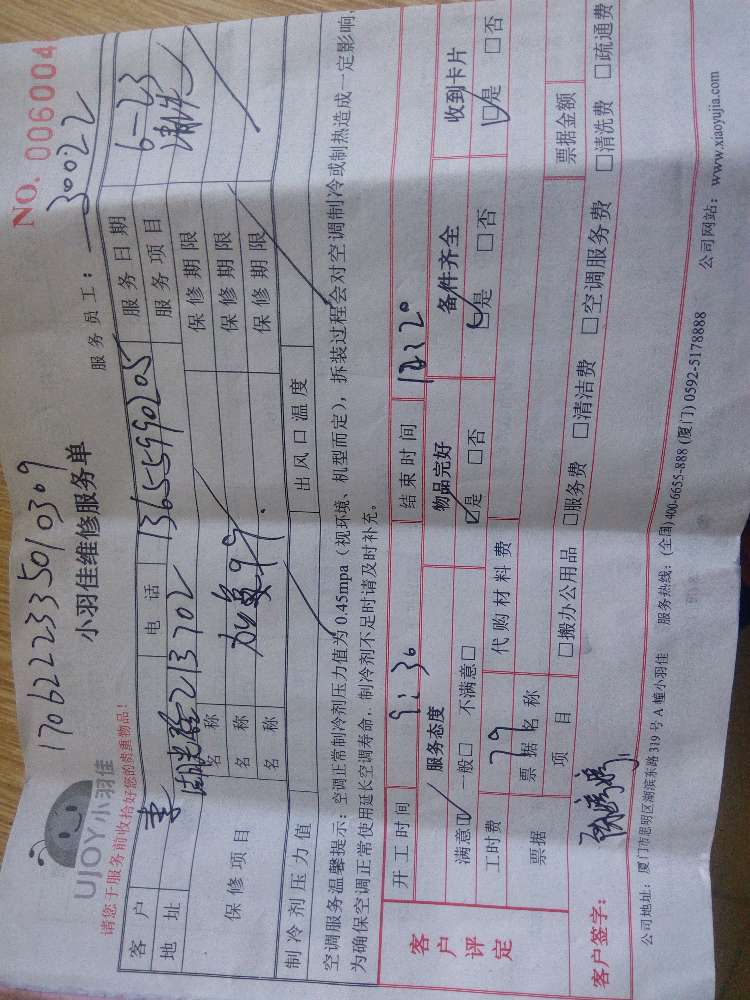 1706222335010309
NO. 006004
UJOY小羽佳
小羽佳维修服务单
服务员工：30022
请您于服务前收拾好您的贵重物品！
客户 李 电话 13655990205 服务日期 6-23
地址 213702 服务项目 清洗
保修项目 名称 保修期限
名称 加氟99. 保修期限
名称 保修期限
制冷剂压力值 出风口温度
空调服务温馨提示：空调正常制冷剂压力值为0.45mpa（视环境、机型而定），拆装过程会对空调制冷或制热造成一定影响，
为确保空调正常使用延长空调寿命，制冷剂不足时请及时补充。
客户评定
开工时间 9:30 结束时间 12:20
服务态度 物品完好 备件齐全 收到卡片
满意☑ 一般□ 不满意□ ☑是 □否 ☑是 □否 ☑是 □否
工时费 79 代购材料费
票据 票据名称 票据金额
项目 □搬办公用品 □服务费 □清洁费 □空调服务费 □清洗费 □疏通费
客户签字：
公司地址：厦门市思明区湖滨东路319号A幢小羽佳 服务热线：(全国)400-6655-888 (厦门) 0592-5178888 公司网站：www.xiaoyujia.com